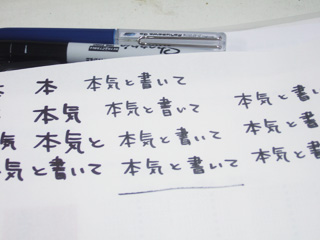 本 本気と書いて
本気 本気と書いて 本気と
気 本気と 本気と書いて 本気と書
気と書いて 本気と書いて 本気と書